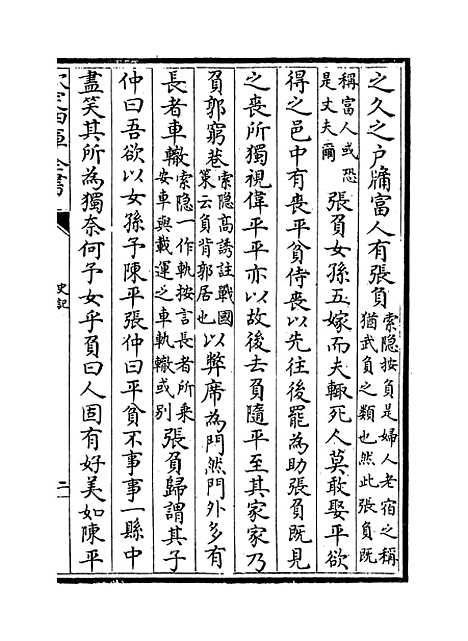 之久之戶牖富人有張負索隱按負是婦人老宿之稱猶武負之類也然此張負既
稱富人或恐是丈夫爾張負女孫五嫁而夫輒死人莫敢娶平欲
得之邑中有喪平貧侍喪以先往後罷為助張負既見
之喪所獨視偉平平亦以故後去負隨平至其家家乃
負郭窮巷索隱高誘註戰國策云負背郭居也以弊席為門然門外多有
長者車轍索隱一作軌按言長者所乘安車與載運之車軌轍或別張負歸謂其子
仲曰吾欲以女孫予陳平張仲曰平貧不事事一縣中
盡笑其所為獨奈何予女乎負曰人固有好美如陳平
欽定四庫全書
史記
二